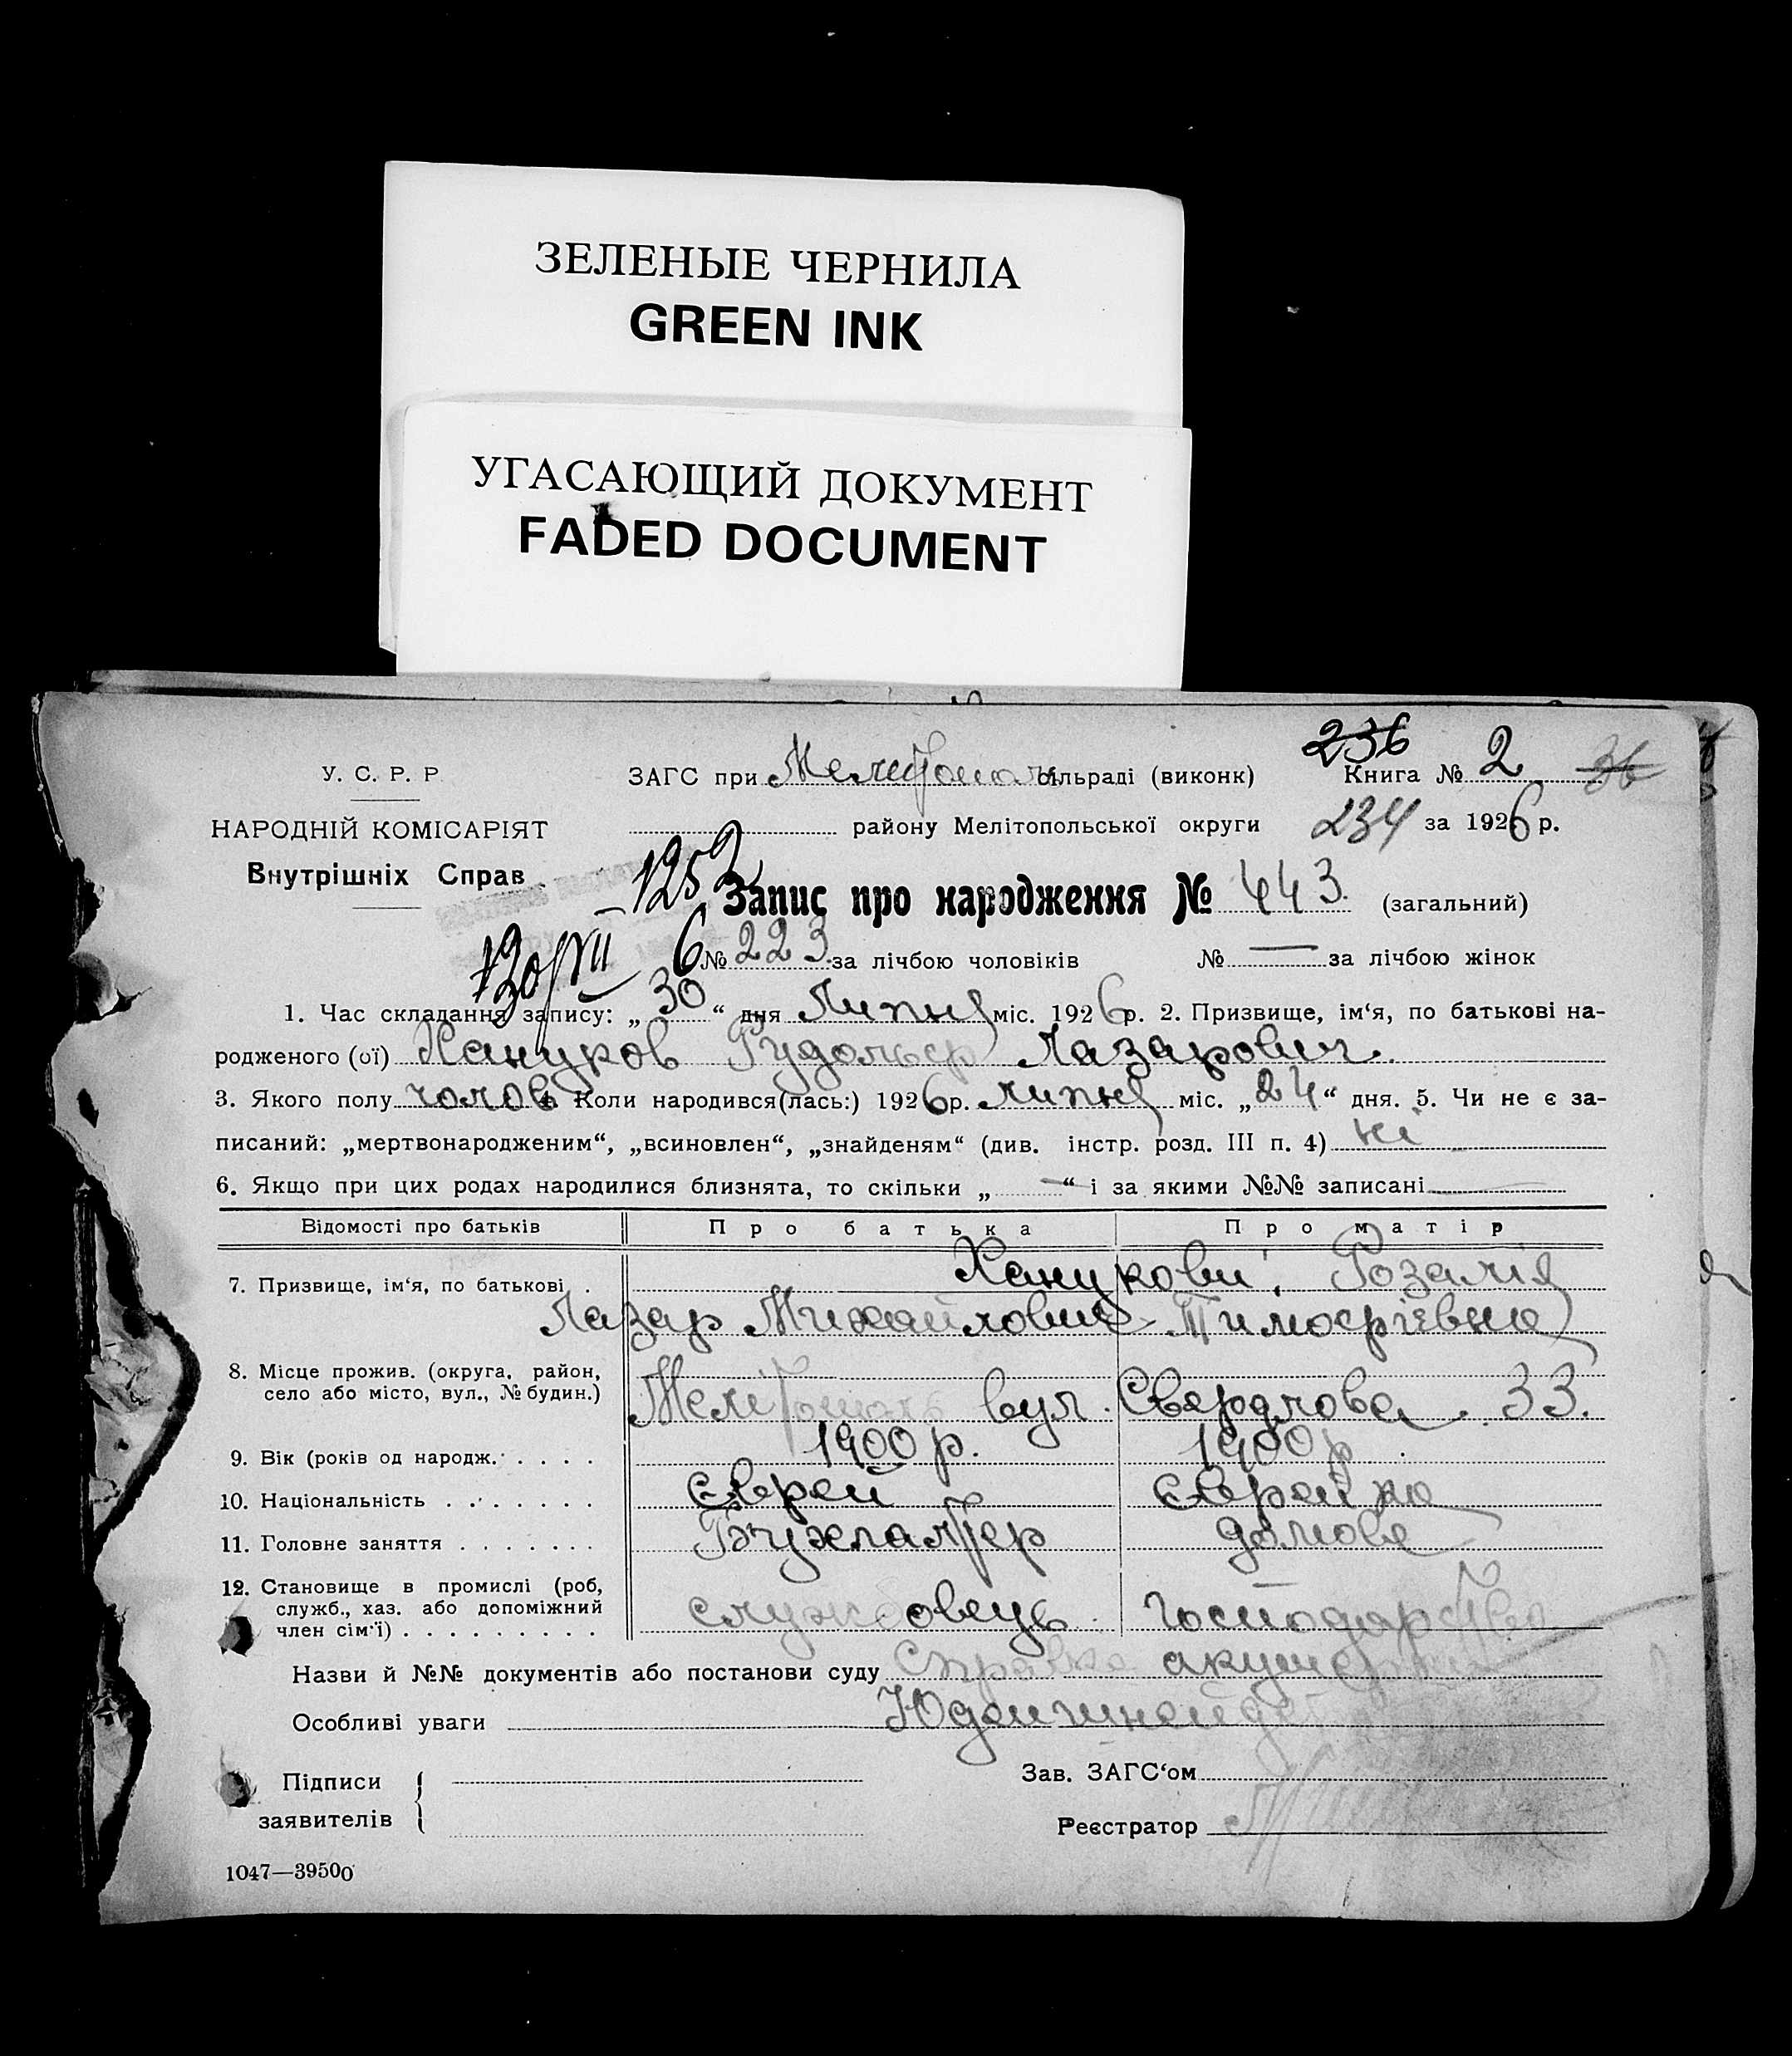 ЗЕЛЕНЫЕ ЧЕРНИЛА
GREEN INK
УГАСАЮЩИЙ ДОКУМЕНТ
FADED DOCUMENT
236
У. С. Р. Р. ЗАГС при Мелітополь сільраді (виконк) Книга № 2 36
НАРОДНІЙ КОМІСАРІЯТ району Мелітопольської округи 234 за 1926 р.
Внутрішніх Справ
1252 Запис про народження № 443. (загальний)
6 № 223. за лічбою чоловіків № — за лічбою жінок
1. Час складання запису: „30“ дня Липня міс. 1926 р. 2. Призвище, ім‘я, по батькові на-
родженого (ої) Хануков Рудольф Лазарович.
3. Якого полу чолов 4. Коли народився(лась:) 1926 р. липня міс. „24“ дня. 5. Чи не є за-
писаний: „мертвонародженим“, „всиновлен“, „знайденям“ (див. інстр. розд. III п. 4) ні
6. Якщо при цих родах народилися близнята, то скільки „—“ і за якими №№ записані —
Відомості про батьків Про батька Про матір
7. Призвище, ім‘я, по батькові . Ханукови, Розалія
Лазар Михайлович Тимофієвна
8. Місце прожив. (округа, район,
село або місто, вул., № будин.) Мелітополь вул. Свердлова 33.
9. Вік (років од народж. . . . . 1900 р. 1900 р.
10. Національність . . . . . . . Єврей Єврейка
11. Головне заняття . . . . . . . Бухгалтер домове
12. Становище в промислі (роб,
служб., хаз. або допоміжний
член сім‘ї) . . . . . . . . . службовець господарство
Назви й №№ документів або постанови суду Справка акушерки
Особливі уваги
Підписи Зав. ЗАГС‘ом
заявителів Реєстратор
1047—39500